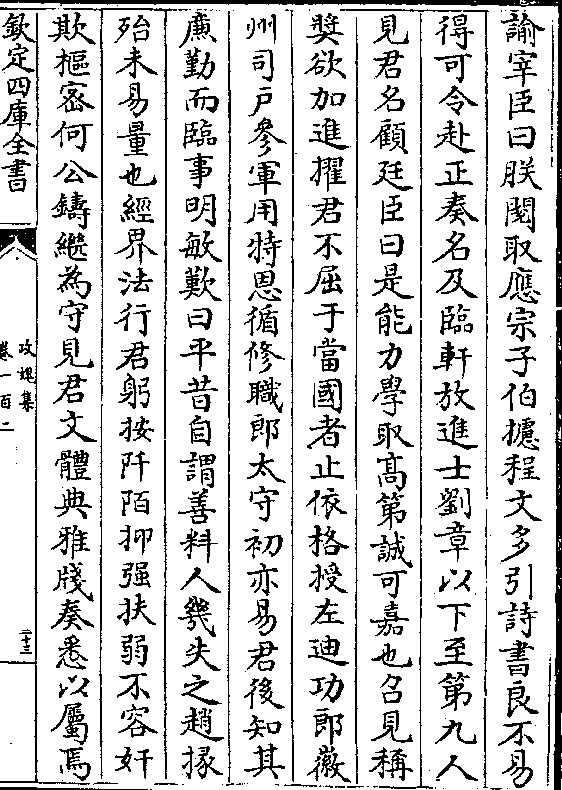 諭宰臣曰朕閱取應宗子伯摅程文多引詩書良不易
得可令赴正奏名及臨軒放進士劉章以下至第九人
見君名顧廷臣曰是能力學取髙第誠可嘉也召見稱
奬欲加進擢君不屈于當國者止依格授左迪功郎徽
州司戶參軍用特恩循修職郎太守初亦易君後知其
廉勤而臨事明敏歎曰平昔自謂善料人幾失之趙掾
殆未易量也經界法行君躬按阡陌抑强扶弱不容奸
欺樞宻何公鑄繼為守見君文體典雅牋奏悉以屬焉
欽定四庫全書
攻媿集
卷一百二
二十三